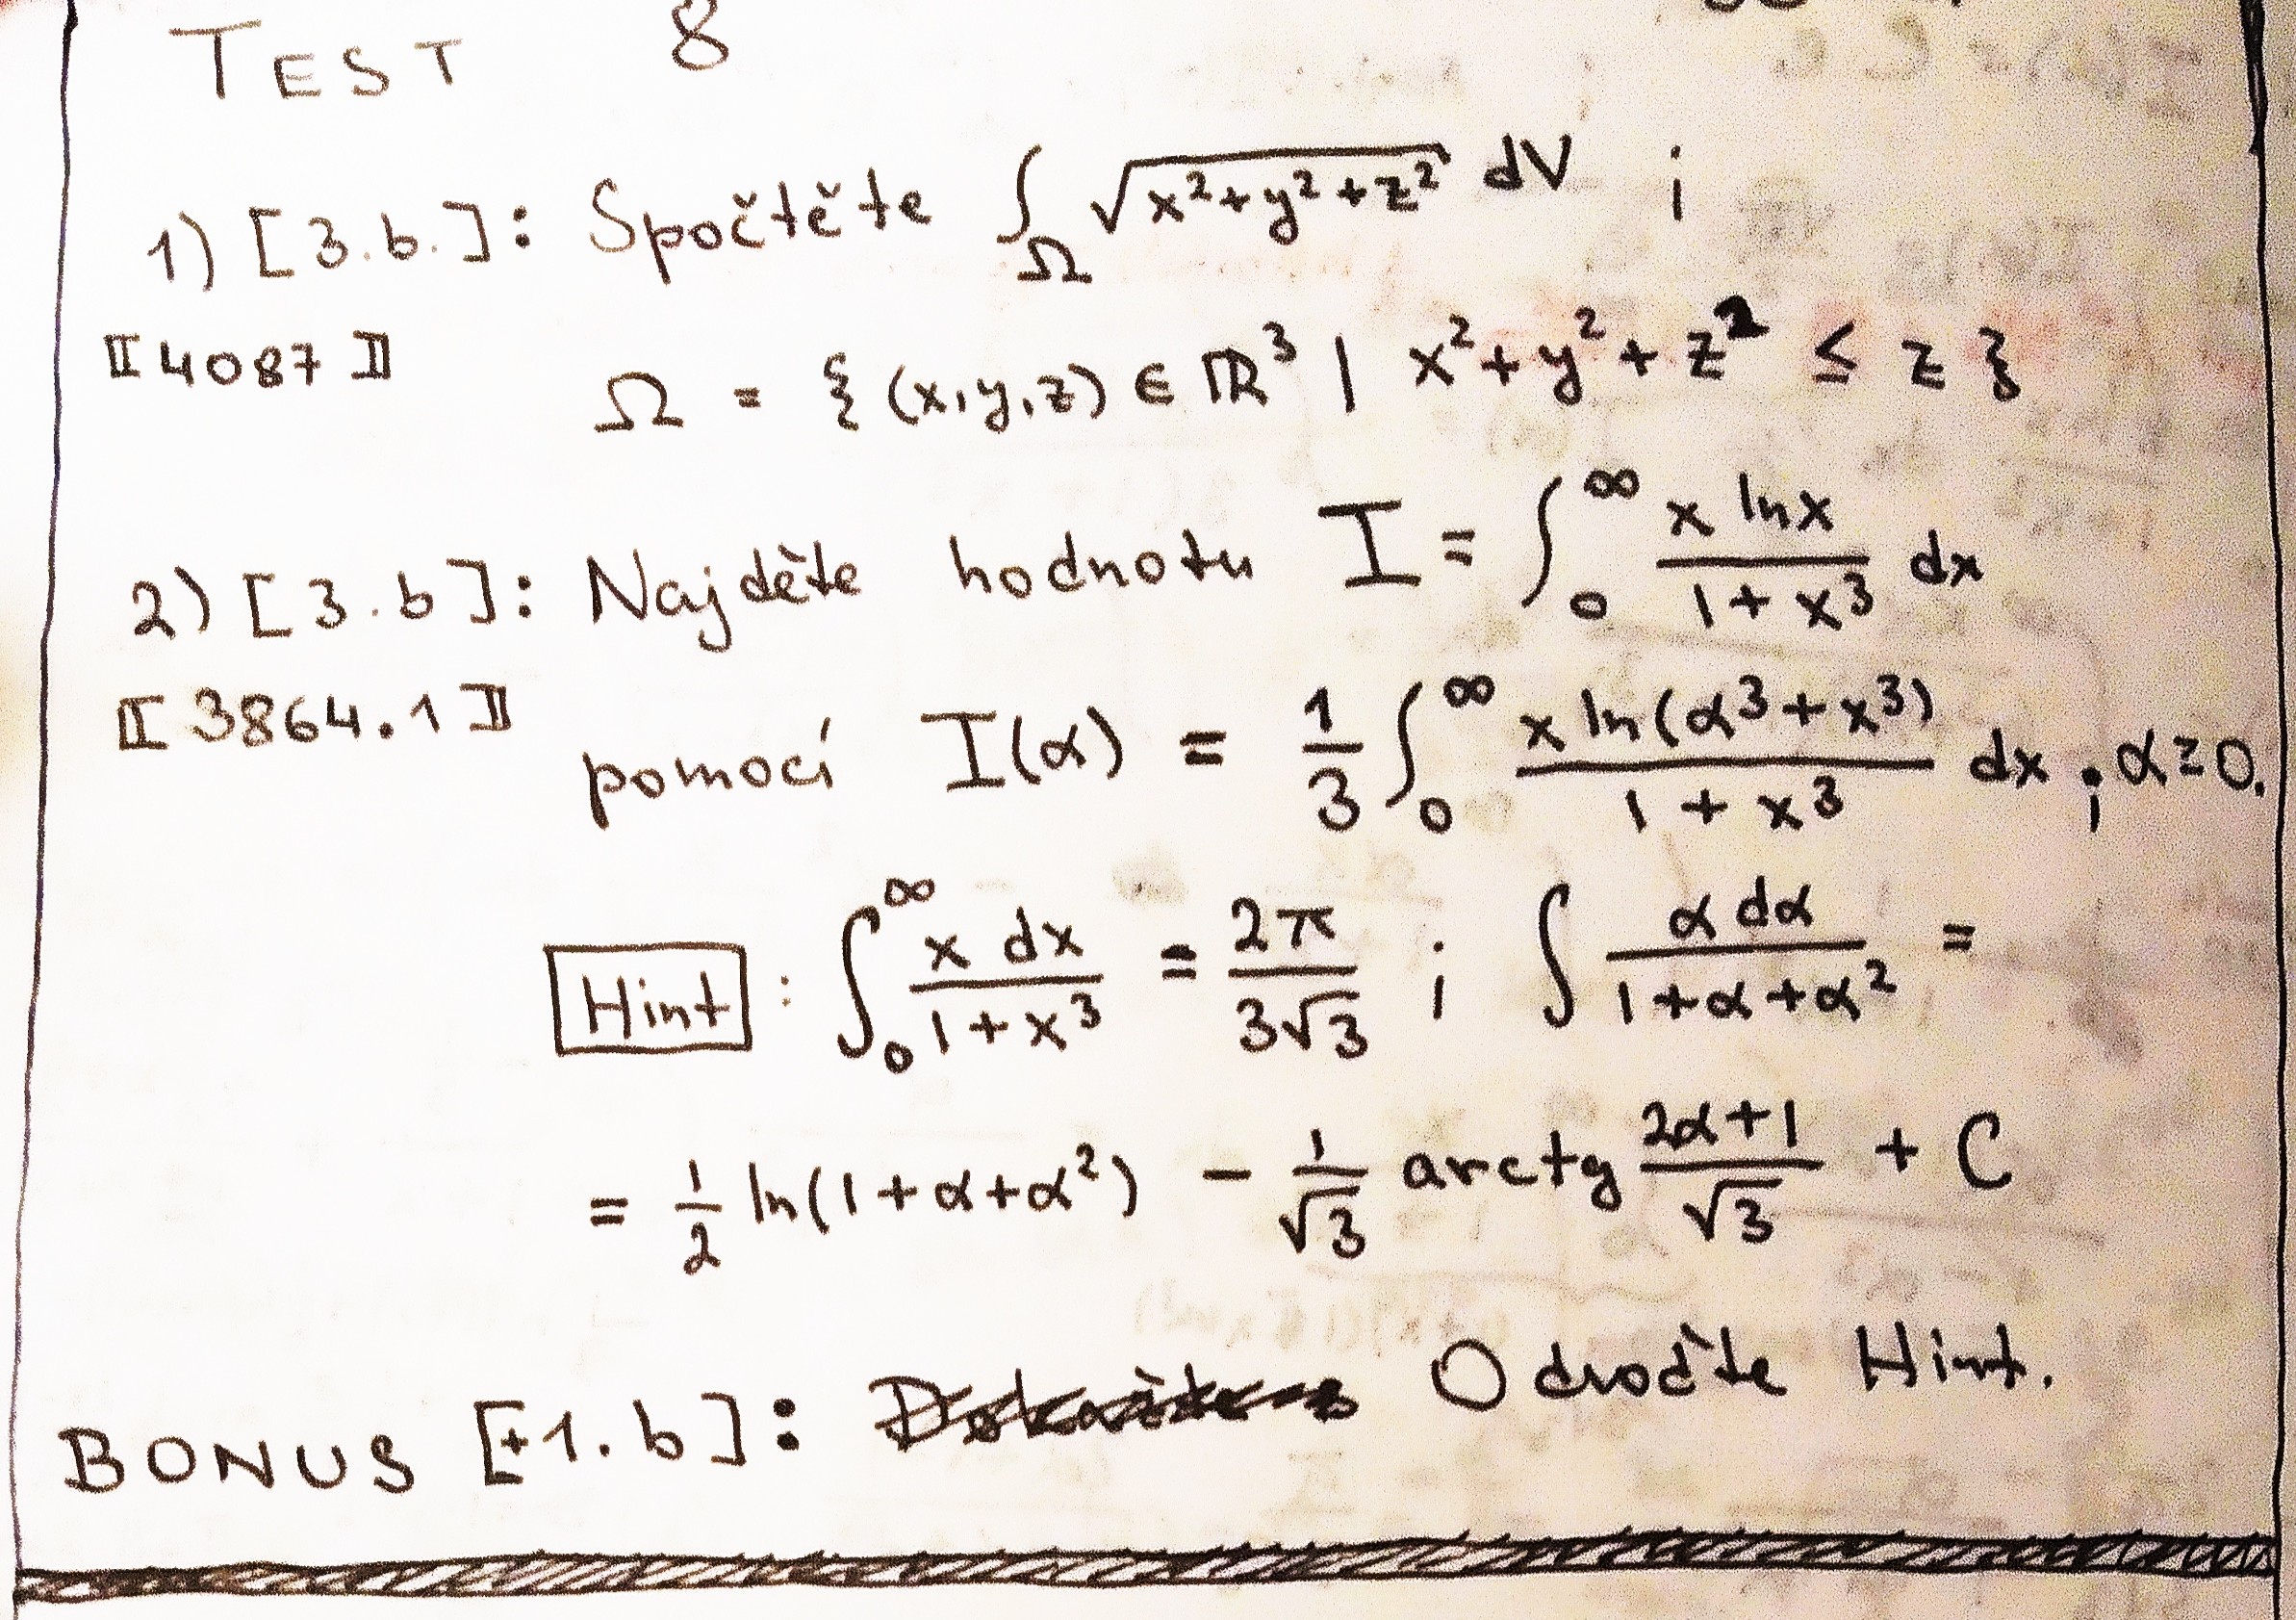 TEST 8
1) [3.b.]: Spočtěte ∫_Ω √(x²+y²+z²) dV ;
⟦4087⟧ Ω = {(x,y,z) ∈ ℝ³ | x²+y²+z² ≤ z}
2) [3.b]: Najděte hodnotu I = ∫₀^∞ (x ln x)/(1+x³) dx
⟦3864.1⟧ pomocí I(α) = 1/3 ∫₀^∞ (x ln(α³+x³))/(1+x³) dx ; α≥0.
Hint : ∫₀^∞ (x dx)/(1+x³) = 2π/(3√3) ; ∫ (α dα)/(1+α+α²) =
= 1/2 ln(1+α+α²) - 1/√3 arctg (2α+1)/√3 + C
BONUS [+1.b]: Odvoďte Hint.